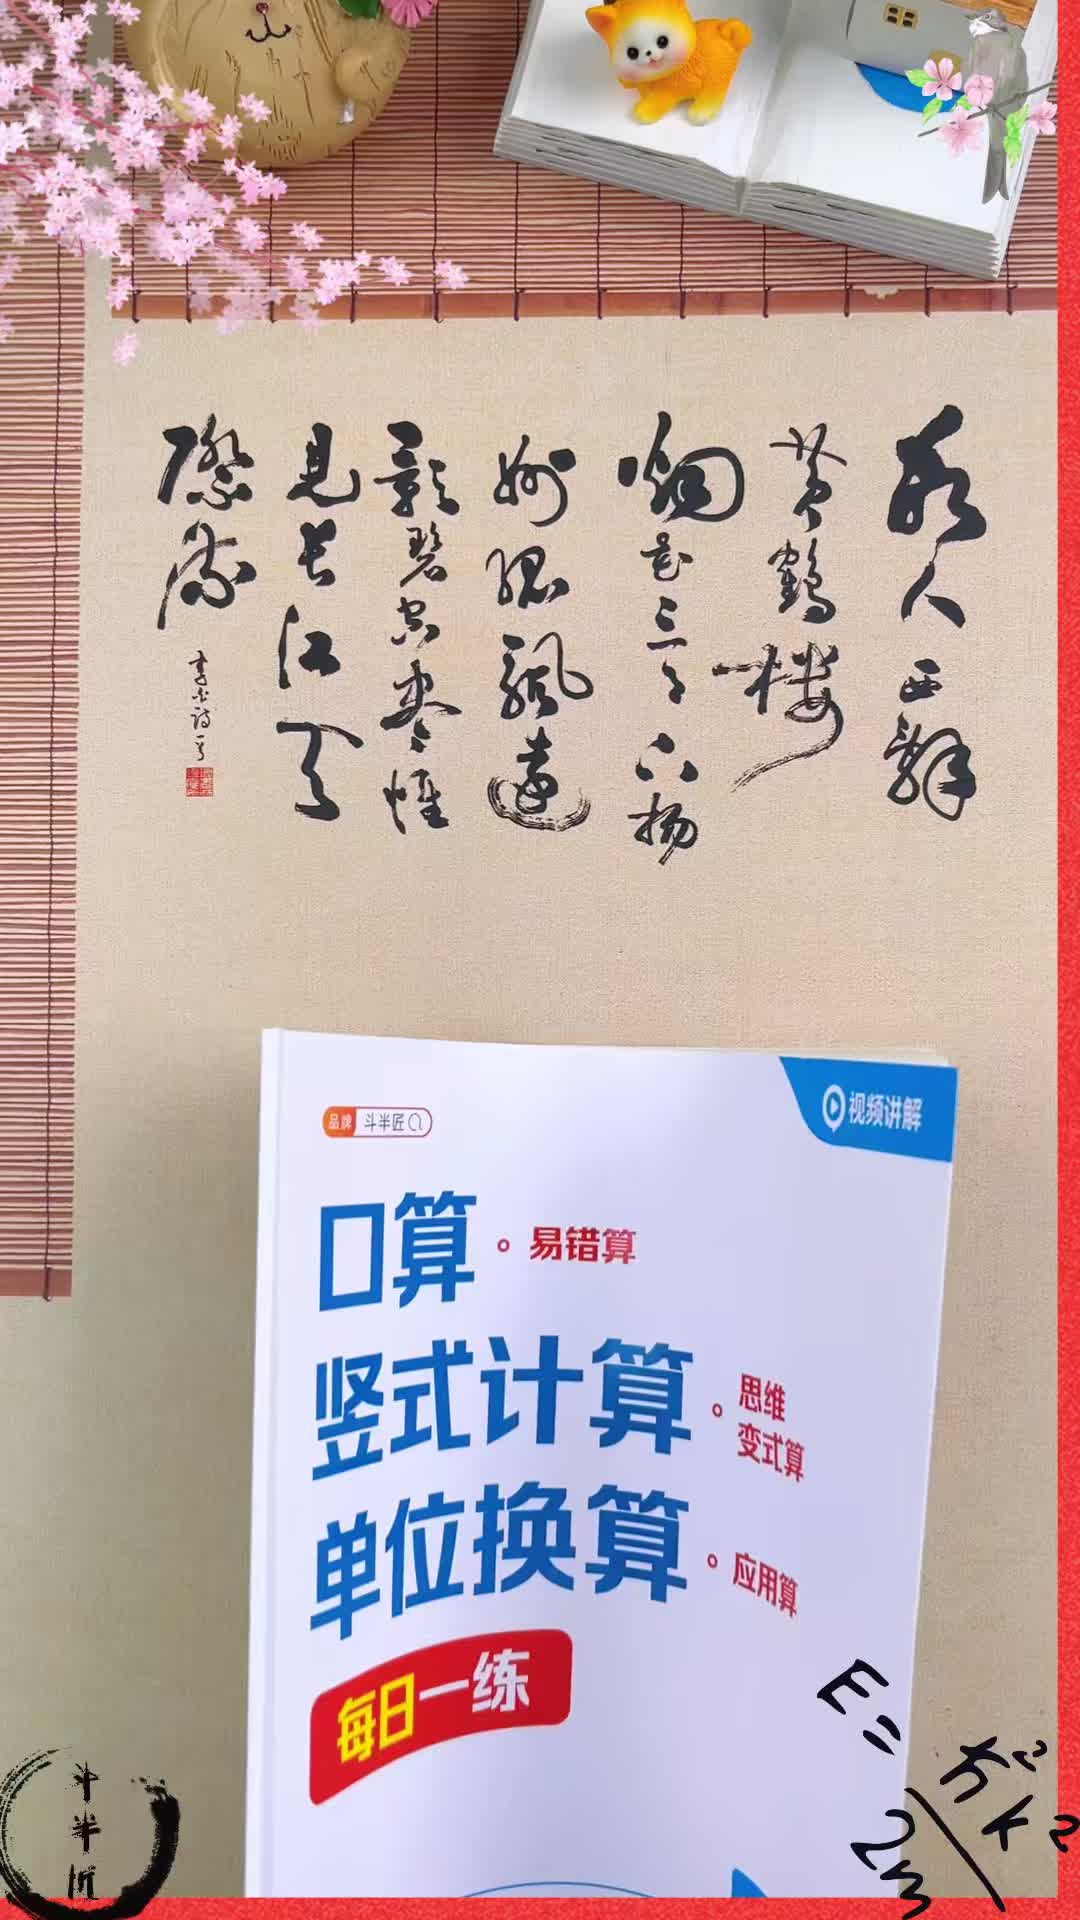 故人西辭
黄鶴楼
烟花三月下揚
州孤颿遠
影碧空盡惟
見長江天
際流
李白詩一首
品牌 斗半匠
视频讲解
口算 易错算
竖式计算 思维
变式算
单位换算 应用算
每日一练
E = ħ²k² / 2m
斗半匠